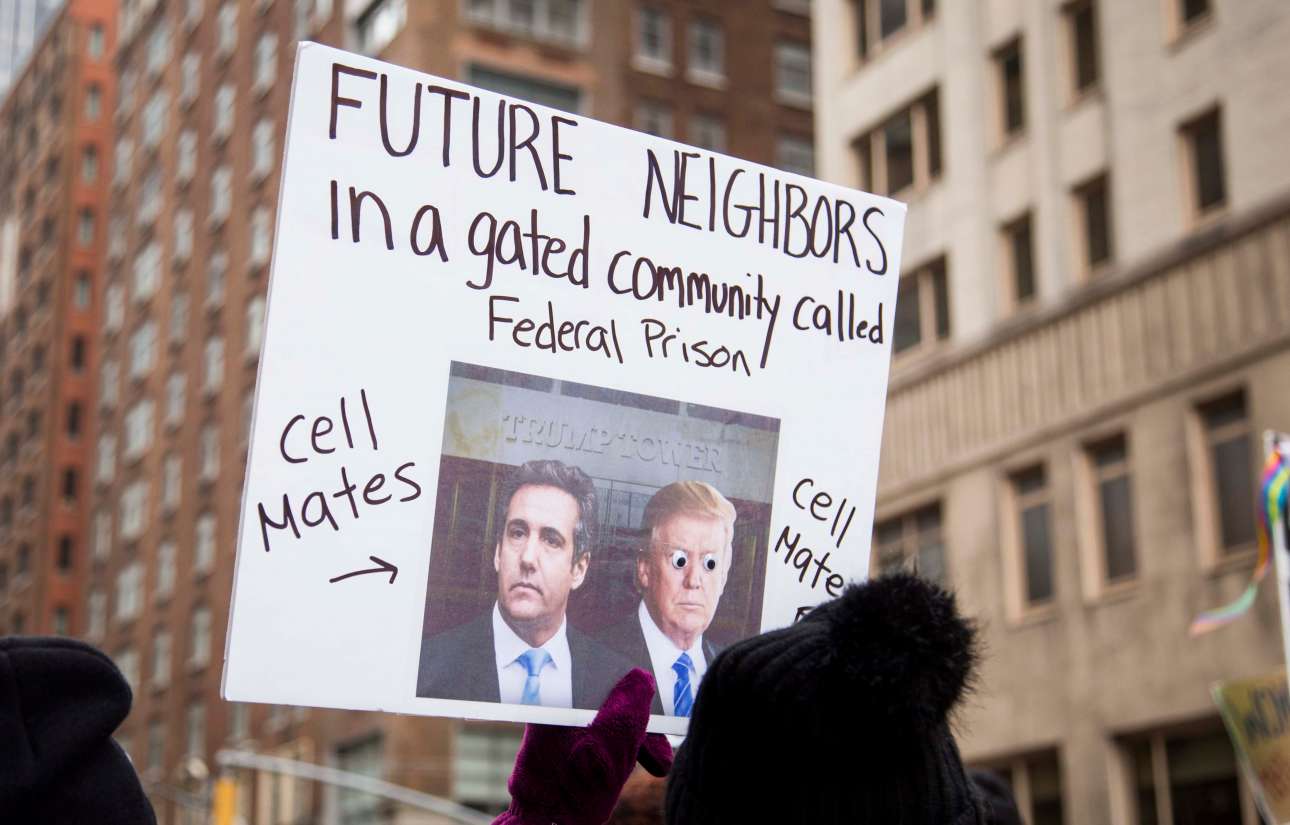 FUTURE NEIGHBORS
in a gated community called
Federal Prison
cell
Mates
TRUMP TOWER
cell